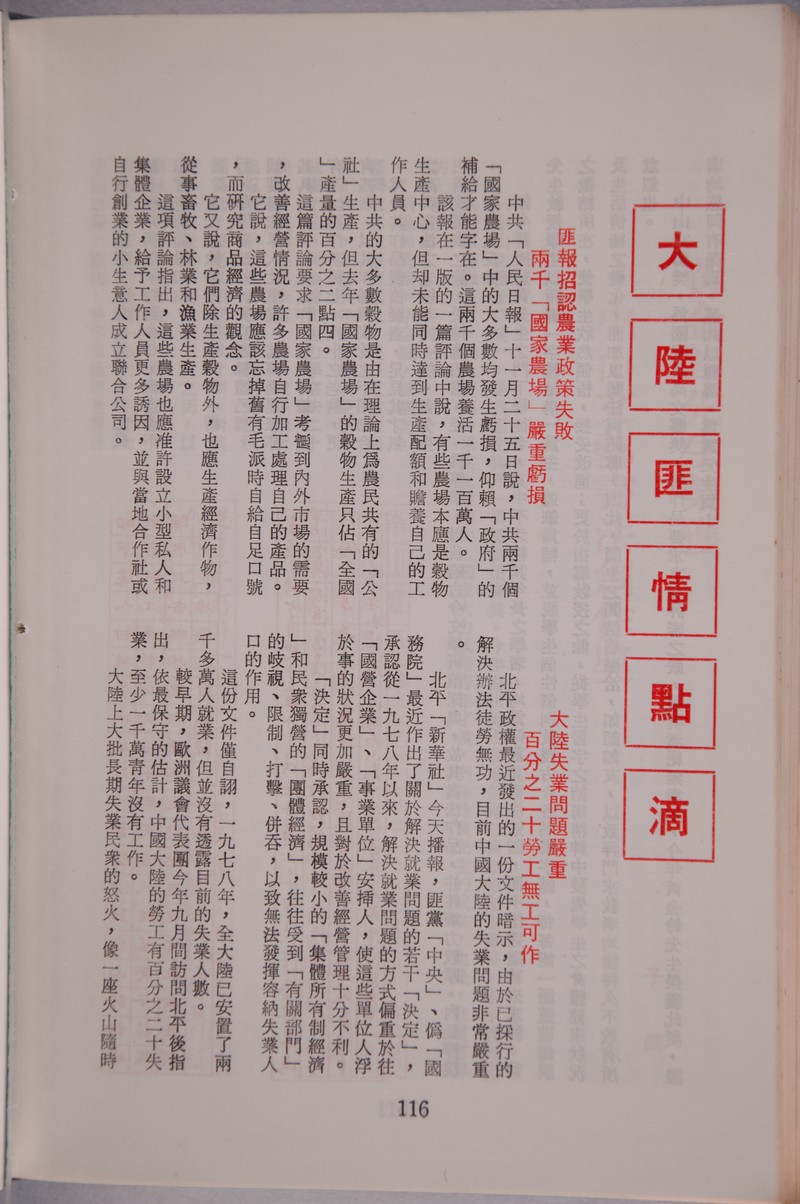 大陸匪情點滴
匪報招認農業政策失敗
兩千「國家農場」嚴重虧損
中共「人民日報」十一月二十五日說，中共兩千個
「國家農場」中的大多數均發生虧損，仰賴「政府」的
補給才能字在。這兩千個農場養活一千一百萬人。
該報在一版的一篇評論中說，有些農場本應是穀物
生產中心，但却未能同時達到生產配額和贍養自己的工
作人員。
中共的大多數穀物是由在理論上爲農民共有的「公
社」生產，但去年「國家農場」的穀物生產只佔「全國
」產量的百分之二點四。
這篇評論要求「國家農場」考慮到內外市場的需要
，改善經營情況，許多農場自行加工處理自己的產品。
它說，這些農場應該忘掉舊有毛派時自給自足口號
，而研究商品經濟的觀念。
它又說，它們除生產穀物外，也應生產經濟作物，
從事畜牧、林業和漁業生產。
這項評論指出，這些農場也應准許設立小型私人和
集體企業，給予工作人員更多誘因，並與當地合作社或
自行創業的小生意人成立聯合公司。
大陸失業問題嚴重
百分之二十勞工無工可作
北平政權最近發出的一份文件暗示，由於已採行的
解決辦法徒勞無功，目前中國大陸的失業問題非常嚴重
。
北平「新華社」今天播報，匪黨「中央」、僞「國
務院」最近作出了關於解決就業問題的若干「決定」，
承認從一九七八年以來，解決就業問題的方式偏重於往
「國營企業」、「事業單位」安揷人，使這些單位人浮
於事的狀況更加嚴重，且對於改善經營管理十分不利。
「決定」同時承認，規模較小的「集體所有制經濟
」和民衆獨營的「團體經濟」，往往受到「有關部門」
的歧視、限制、打擊、併吞，以致無法發揮容納失業人
口的作用。
這份文件僅自認，一九七八年，全大陸已安置了兩
千多萬人就業，但並沒有透露目前的失業人數。
較早期，歐洲議會代表團今年九月間訪問北平後指
出，依最保守的估計，中國大陸的勞工有百分之二十失
業，至少一千萬靑年沒有工作。
大陸上大批長期失業民衆的怒火，像一座火山隨時
116